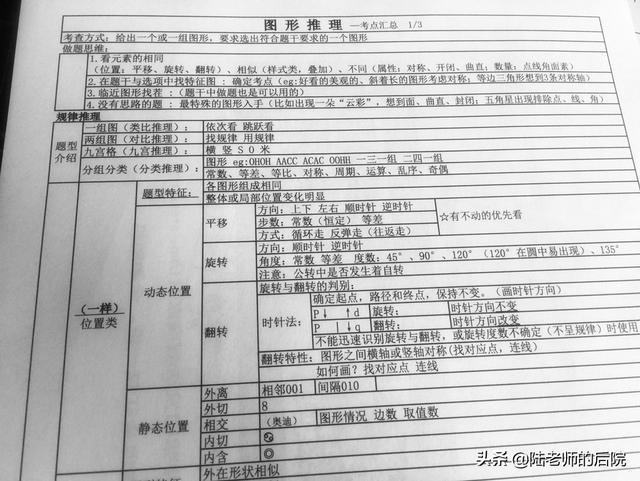 图 形 推 理 —考点汇总 1/3
考查方式：给出一个或一组图形，要求选出符合题干要求的一个图形
做题思维：
1.看元素的相同
（位置：平移、旋转、翻转）、相似（样式类，叠加）、不同（属性：对称、开闭、曲直；数量：点线角面素）
2.在题干与选项中找特征图 ：确定考点（eg:好看的美观的、斜着长的图形考虑对称；等边三角形想到3条对称轴）
3.临近图形找茬：（题干中做题也是可以用的）
4.没有思路的题 ：最特殊的图形入手（比如出现一朵“云彩”，想到面、曲直、封闭；五角星出现排除点、线、角）
规律推理
题型介绍
一组图（类比推理）： 依次看 跳跃看
两组图（对比推理）： 找规律 用规律
九宫格（九宫推理）： 横 竖 S O 米
分组分类（分类推理）： 图形 eg:OHOH AACC ACAC OOHH 一三一组 二四一组
常数、等差、等比、对称、周期、运算、乱序、奇偶
（一样）
位置类
题型特征： 各图形组成相同
整体或局部位置变化明显
动态位置
平移
方向：上下 左右 顺时针 逆时针
步数：常数（恒定） 等差
方式：循环走 反弹走（往返走）
☆有不动的优先看
旋转
方向：顺时针 逆时针
角度：常数 等差 度数：45°、90°、120°（120°在圆中易出现）、135°
注意：公转中是否发生着自转
翻转
旋转与翻转的判别：
时针法：
确定起点，路径和终点，保持不变。（画时针方向）
P↓ ↑d 旋转： 时针方向不变
P │↓q 翻转： 时针方向改变
不能迅速识别旋转与翻转，或旋转度数不确定（不呈规律）时使用
翻转特性：图形之间横轴或竖轴对称(找对应点，连线)
如何画？找对应点 连线
静态位置
外离 相邻001 间隔010
外切 8
相交 （奥迪） 图形情况 边数 取值数
内切
内含 ◎
外在形状相似
头条 @陆老师的后院